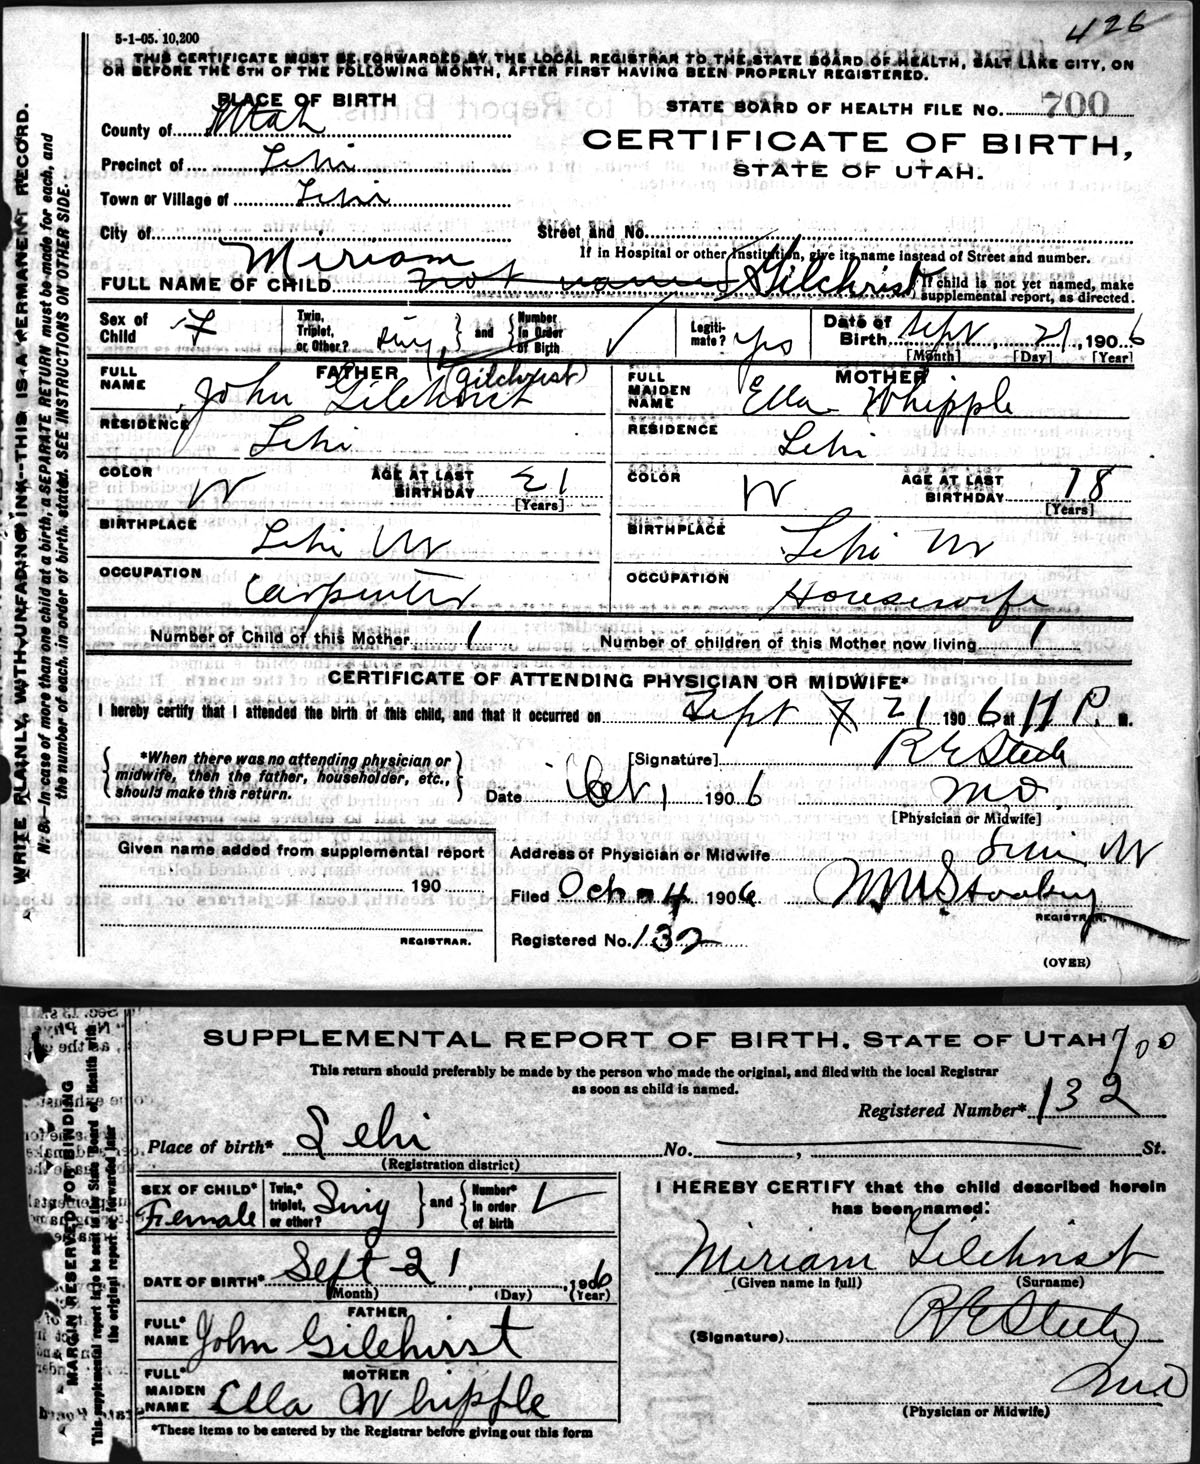 426
5-1-05. 10,200
THIS CERTIFICATE MUST BE FORWARDED BY THE LOCAL REGISTRAR TO THE STATE BOARD OF HEALTH, SALT LAKE CITY, ON
OR BEFORE THE 5TH OF THE FOLLOWING MONTH, AFTER FIRST HAVING BEEN PROPERLY REGISTERED.
PLACE OF BIRTH
STATE BOARD OF HEALTH FILE No. 700
County of Utah
CERTIFICATE OF BIRTH,
STATE OF UTAH.
Precinct of Lehi
Town or Village of Lehi
City of
Street and No.
If in Hospital or other Institution, give its name instead of Street and number.
Miriam
FULL NAME OF CHILD not named Gilchrist
If child is not yet named, make
supplemental report, as directed.
Sex of Child F
Twin, Triplet, or Other? sing
and
Number in Order of Birth
Legitimate? yes
Date of Birth Sept 21, 1906
[Month] [Day] [Year]
FATHER
(Gilchrist)
FULL NAME John Gilchirst
RESIDENCE Lehi
COLOR W
AGE AT LAST BIRTHDAY 21
[Years]
BIRTHPLACE Lehi Ut
OCCUPATION Carpenter
MOTHER
FULL MAIDEN NAME Ella Whipple
RESIDENCE Lehi
COLOR W
AGE AT LAST BIRTHDAY 18
[Years]
BIRTHPLACE Lehi Ut
OCCUPATION Housewife
Number of Child of this Mother 1
Number of children of this Mother now living 1
CERTIFICATE OF ATTENDING PHYSICIAN OR MIDWIFE*
I hereby certify that I attended the birth of this child, and that it occurred on Sept 21 1906 at 11 P. M.
*When there was no attending physician or
midwife, then the father, householder, etc.,
should make this return.
[Signature] R E Steele
Date Oct 1 1906
M.D.
[Physician or Midwife]
Given name added from supplemental report
190
REGISTRAR.
Address of Physician or Midwife Lehi Ut
Filed Oct 4 1906
REGISTRAR.
Registered No. 132
(OVER)
WRITE PLAINLY, WITH UNFADING INK--THIS IS A PERMANENT RECORD.
N. B.--In case of more than one child at a birth, a SEPARATE RETURN must be made for each, and
the number of each, in order of birth, stated. SEE INSTRUCTIONS ON OTHER SIDE.
SUPPLEMENTAL REPORT OF BIRTH, STATE OF UTAH 700
This return should preferably be made by the person who made the original, and filed with the local Registrar
as soon as child is named.
Registered Number* 132
Place of birth* Lehi No. , St.
(Registration district)
SEX OF CHILD* Female
Twin,* triplet, or other? Sing
and
Number* in order of birth
DATE OF BIRTH* Sept 21, 1906
(Month) (Day) (Year)
FATHER
FULL* NAME John Gilchirst
MOTHER
FULL* MAIDEN NAME Ella Whipple
*These items to be entered by the Registrar before giving out this form
I HEREBY CERTIFY that the child described herein
has been named:
Miriam Gilchrist
(Given name in full) (Surname)
(Signature) R E Steele
M D
(Physician or Midwife)
MARGIN RESERVED FOR BINDING
This supplemental report to be sent to the State Board of Health with
the original report or forwarded later